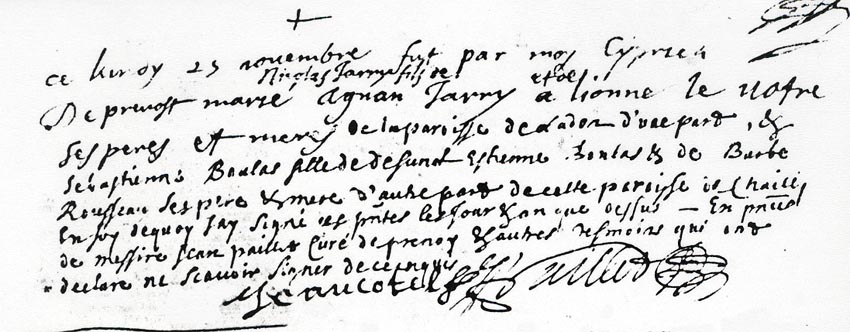 ce lundy 25 novembre fust par moy Cyprien
Nicolas Tarry fils de et de
De prevost marié Agnan Tarry a lionne le
ses peres et meres De la paroisse de Ladon d'une part, &
Sebastienne Boulas fille de defunct Estienne Boulas & de Barbe
Rousseau ses pere & mere d'autre part de cette paroisse
En foy de quoy Jay signé ces pntes les jour & an que dessus — En
de messire Jean paillet Curé de prenoy & autres tesmoins qui ont
declare ne scavoir signer de ce enquis